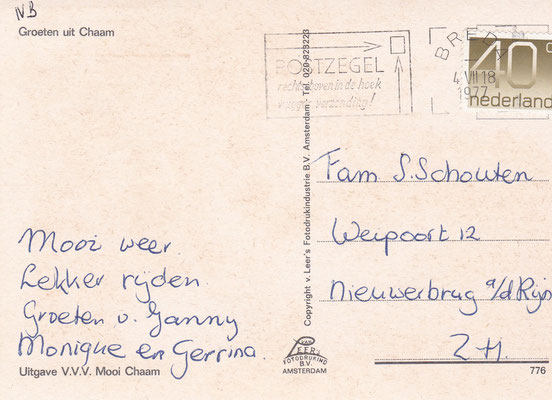 NB
Groeten uit Chaam
POSTZEGEL
rechtsboven in de hoek
verzending!
BREDA
4 VII 18
1977
40c
nederland
Mooi weer.
Lekker rijden
Groeten v. Janny
Monique en Gerrina.
Uitgave V.V.V. Mooi Chaam
Copyright v. Leer's Fotodrukindustrie B.V. Amsterdam - Tel. 020-823223
VAN
LEER'S
FOTODRUKIND
B.V.
AMSTERDAM
Fam S. Schouten
Weipoort 12
Nieuwerbrug a/d Rijn
Z.H.
776